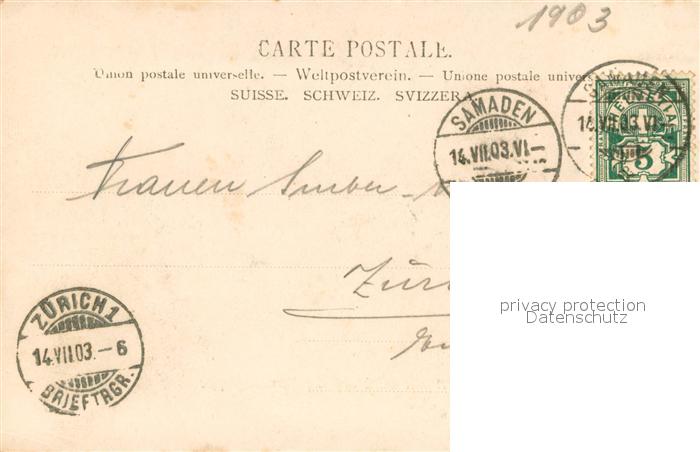 1903
CARTE POSTALE.
Union postale universelle. — Weltpostverein. — Unione postale univers
SUISSE. SCHWEIZ. SVIZZERA
SAMADEN
14.VII.03.VI—
14.VII.03.VI—
HELVETIA
5
Frauen
Zür
ZÜRICH 1
14.VII.03.—6
BRIEFTRGR.
privacy protection
Datenschutz